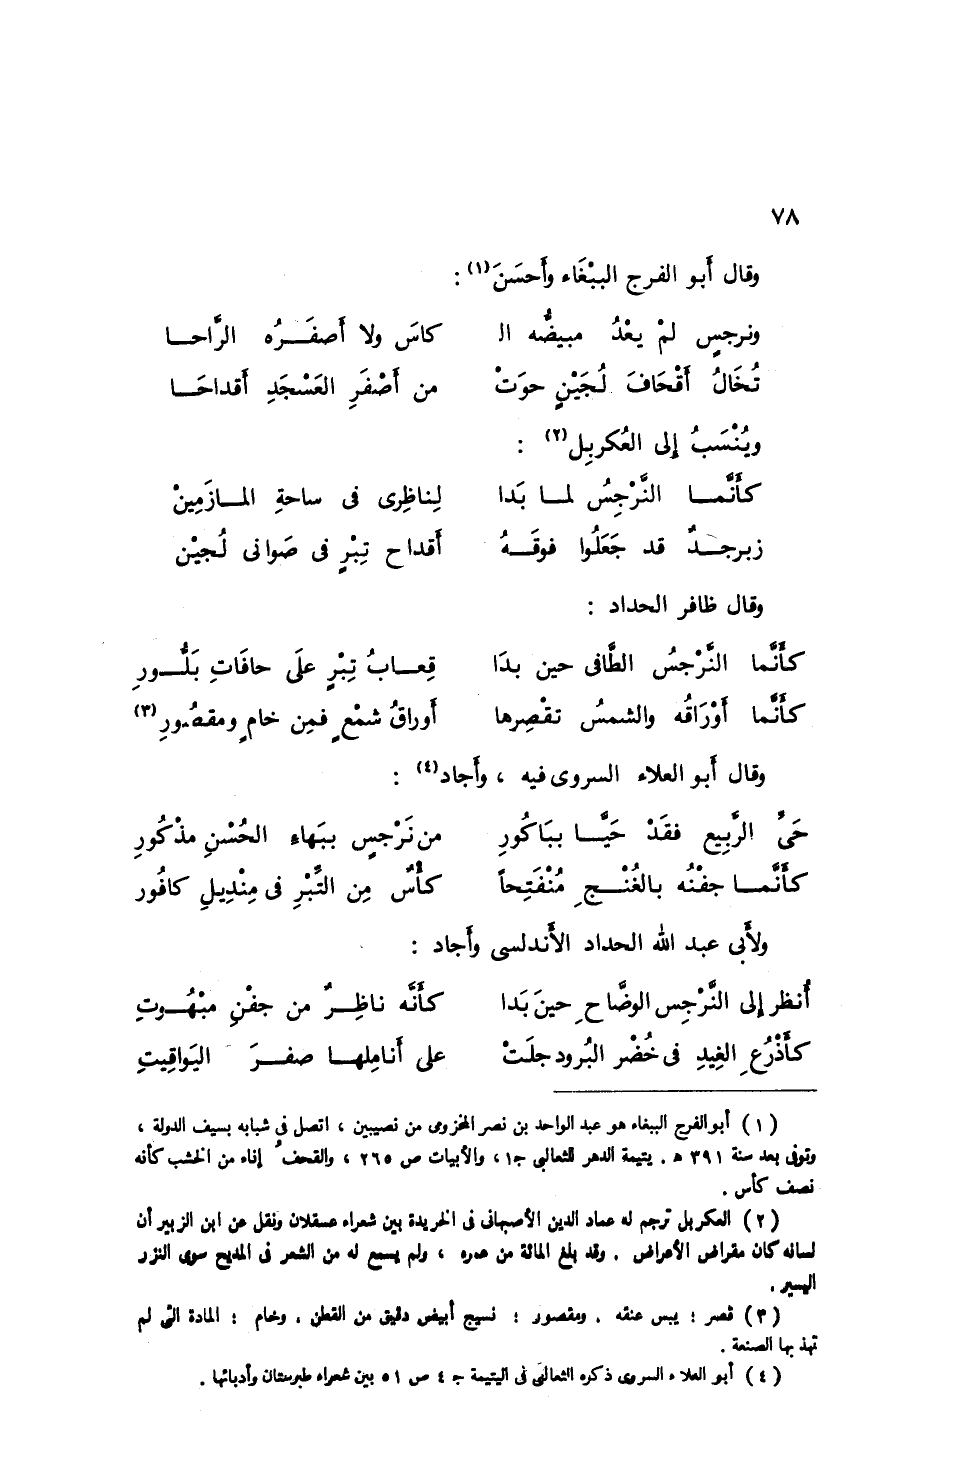 ٧٨
وقال أبو الفرج الببْغَاء وأَحسَنَ(١) :
ونرجسٍ لمْ يعْدُ مبيضُّه الـ كاسَ ولا أَصفَـــرُه الرَّاحـــا
تُخَالُ أَقْحَافَ لُجَيْنٍ حوَتْ من أَصْفَرِ العَسْجَدِ أَقداحَـــا
ويُنْسَبُ إلى العُكربِل(٢) :
كأَنَّمـــا النَّرْجِسُ لمــا بَدا لِناظِرى فى ساحةِ المــازَمِينْ
زبرجــدٌ قد جَعَلُوا فوقَــهُ أَقداح تِبْرٍ فى صَوانى لُجينْ
وقال ظافر الحداد :
كأَنَّما النَّرْجسُ الطَّافى حين بدَا قِعــابُ تِبْرٍ علَى حافَاتِ بَلُّــورِ
كأَنَّما أَوْرَاقُه والشمسُ تقْصِرها أَوراقُ شمْعٍ فمِن خامٍ ومقصُورِ(٣)
وقال أَبو العلاء السروى فيه ، وأَجاد(٤) :
حَىِّ الرَّبِيع فقَدْ حَيَّــا ببَاكُورِ من نَرْجسٍ ببَهاءِ الحُسْنِ مذْكُورِ
كأَنَّمــا جفْنُه بالغُنْــجِ مُنْفَتِحاً كأْسٌ مِن التِّبْرِ فى مِنْدِيلِ كافُور
ولأَبى عبد الله الحداد الأَندلسى وأَجاد :
أُنظر إلى النَّرْجس الوضَّاحِ حينَ بَدا كأَنَّه ناظِــرٌ من جفْنِ مبْهُــوتِ
كأَذْرُعِ الغِيدِ فى خُضْر البُرود جلَتْ على أَنامِلهــا صفــرَ اليَواقِيتِ
(١) أبو الفرج الببغاء هو عبد الواحد بن نصر المخزومى من نصيبين ، اتصل فى شبابه بسيف الدولة ،
وتوفى بعد سنة ٣٩١ ه . يتيمة الدهر للثعالبى ج١ ، والأبيات ص ٢٦٥ ، والقحف إناء من الخشب كأنه
نصف كأس .
(٢) العكربل ترجم له عماد الدين الأصبهانى فى الخريدة بين شعراء عسقلان ونقل عن ابن الزبير أن
لسانه كان مقراض الأعراض . وقد بلغ المائة من عمره ، ولم يسمع له من الشعر فى المديح سوى النزر
اليسير .
(٣) قصر : يبس عنقه . ومقصور : نسيج أبيض دقيق من القطن . وخام : المادة التى لم
تهذبها الصنعة .
(٤) أبو العلاء السروى ذكره الثعالبى فى اليتيمة ج ٤ ص ٥١ بين شعراء طبرستان وأدبائها .